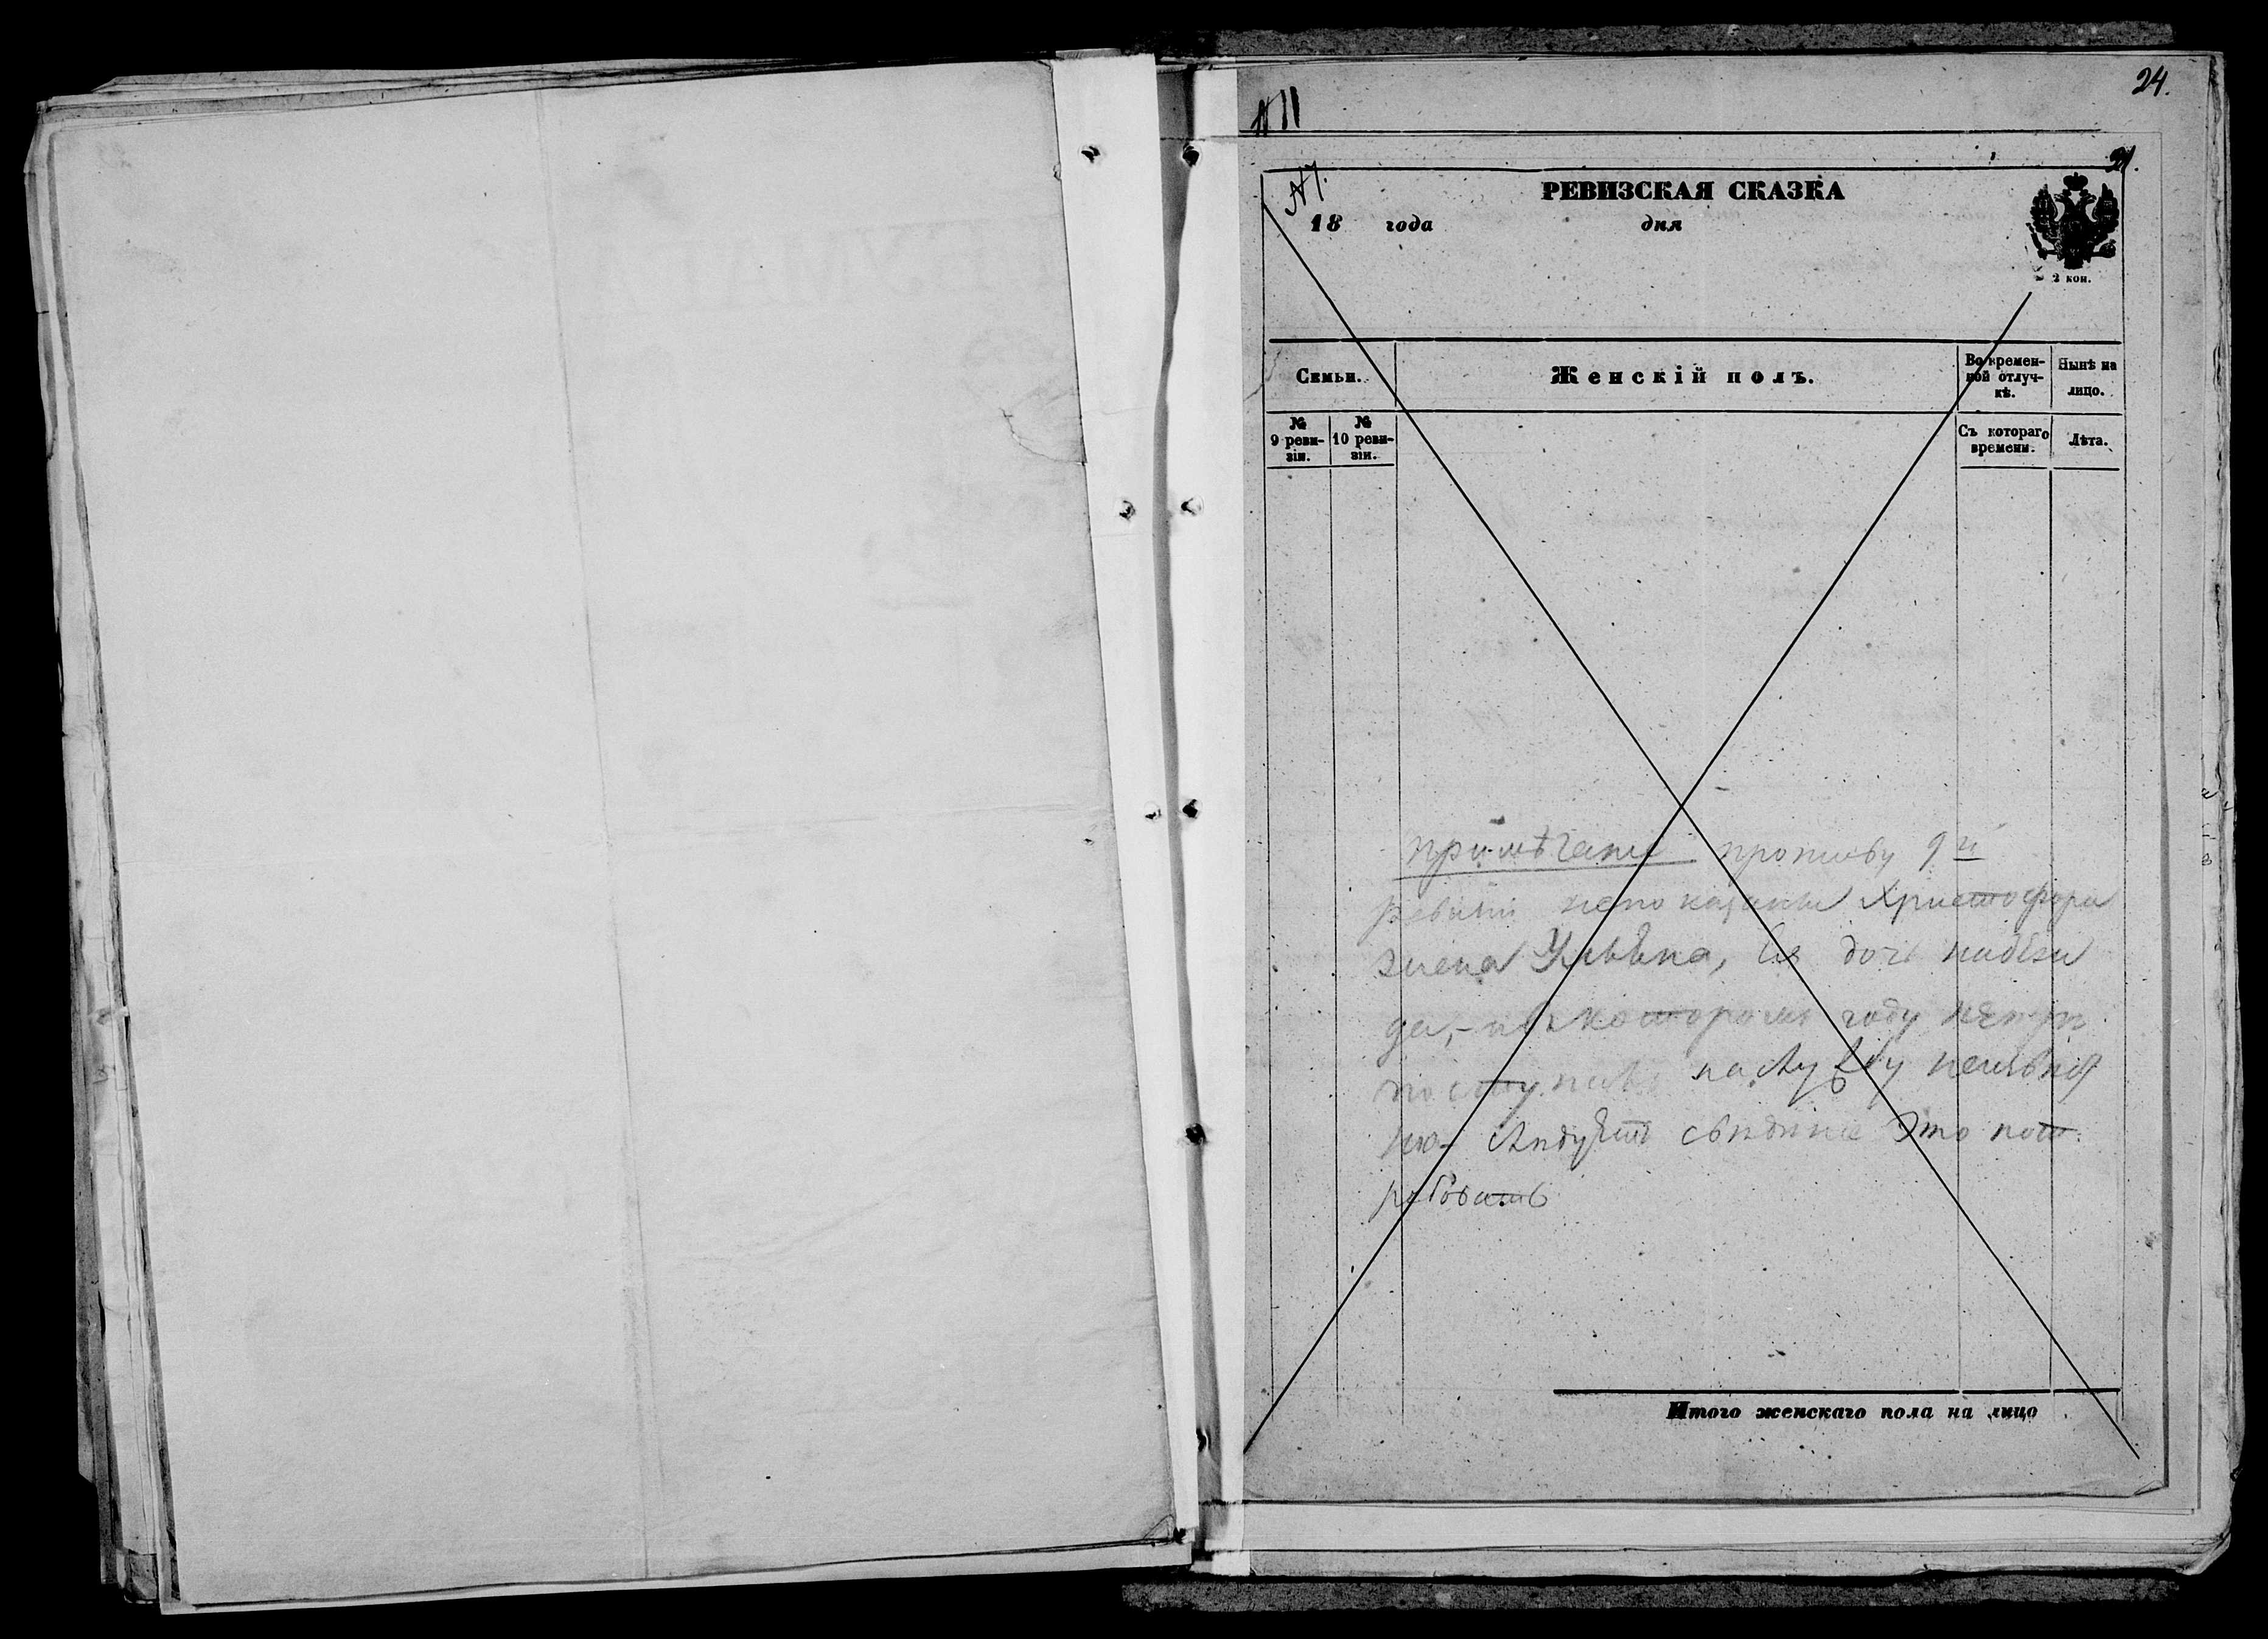 24.
№ 11
21.
№ 7.
РЕВИЗСКАЯ СКАЗКА
18 года дня
2 коп.
Семьи.
Женскій полъ.
Во времен-
ной отлуч-
кѣ.
Ныне на
лицо.
№
9 реви-
зіи.
№
10 реви-
зіи.
Съ котораго
времени.
Лѣта.
примѣчаніе противу 9й
ревизіи непоказаны Христофора
жена Ульяна, ея дочь надеж
да, которомъ году
поступилъ наслужбу неизвѣстн
но Следуетъ сведение Это пот
ребовать
Итого женскаго пола на лицо